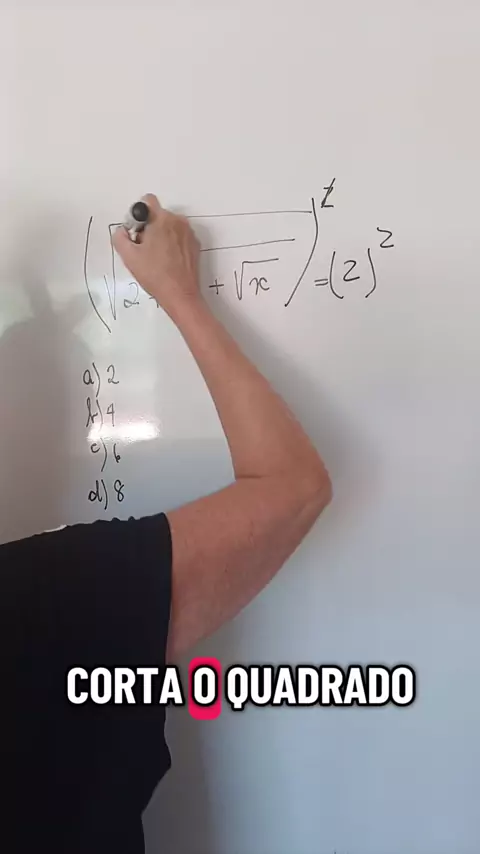 (√2 + √x)² = (2)²
a) 2
b) 4
c) 6
d) 8
CORTA O QUADRADO